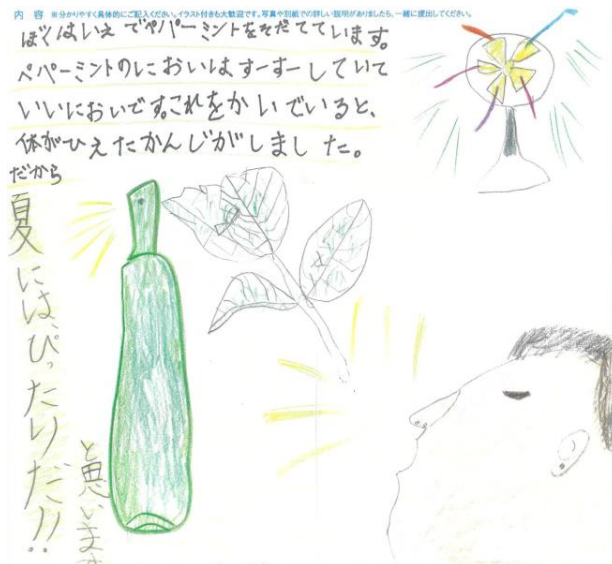 内 容 ※分かりやすく具体的にご記入ください。イラスト付きも大歓迎です。写真や別紙での詳しい説明がありましたら、一緒に提出してください。
ぼくはいえでペパーミントをそだてています。
ペパーミントのにおいはすーすーしていて
いいにおいです。これをかいでいると、
体がひえたかんじがしました。
だから
夏には、ぴったりだ!!
と思います